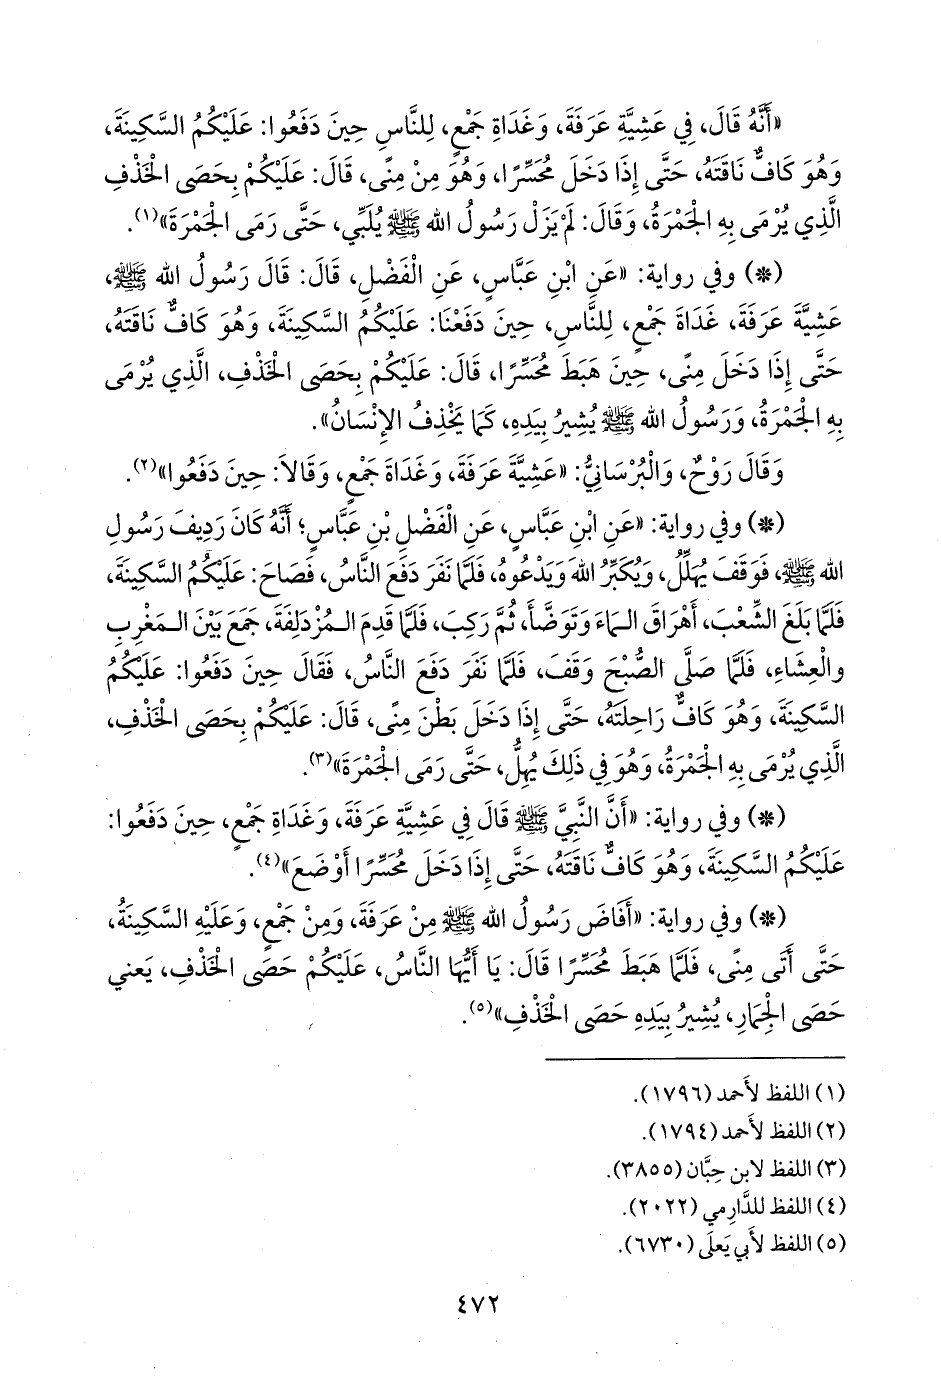 «أَنَّهُ قَالَ، فِي عَشِيَّةِ عَرَفَةَ، وَغَدَاةِ جَمْعٍ، لِلنَّاسِ حِينَ دَفَعُوا: عَلَيْكُمُ السَّكِينَةَ،
وَهُوَ كَافٌّ نَاقَتَهُ، حَتَّى إِذَا دَخَلَ مُحَسِّرًا، وَهُوَ مِنْ مِنًى، قَالَ: عَلَيْكُمْ بِحَصَى الْخَذْفِ
الَّذِي يُرْمَى بِهِ الْجَمْرَةُ، وَقَالَ: لَمْ يَزَلْ رَسُولُ الله ﷺ يُلَبِّي، حَتَّى رَمَى الْجَمْرَةَ»(١).
(*) وفي رواية: «عَنِ ابْنِ عَبَّاسٍ، عَنِ الْفَضْلِ، قَالَ: قَالَ رَسُولُ الله ﷺ،
عَشِيَّةَ عَرَفَةَ، غَدَاةَ جَمْعٍ، لِلنَّاسِ، حِينَ دَفَعْنَا: عَلَيْكُمُ السَّكِينَةَ، وَهُوَ كَافٌّ نَاقَتَهُ،
حَتَّى إِذَا دَخَلَ مِنًى، حِينَ هَبَطَ مُحَسِّرًا، قَالَ: عَلَيْكُمْ بِحَصَى الْخَذْفِ، الَّذِي يُرْمَى
بِهِ الْجَمْرَةُ، وَرَسُولُ الله ﷺ يُشِيرُ بِيَدِهِ، كَمَا يَخْذِفُ الإِنْسَانُ».
وَقَالَ رَوْحٌ، وَالْبُرْسَانِيُّ: «عَشِيَّةَ عَرَفَةَ، وَغَدَاةَ جَمْعٍ، وَقَالَا: حِينَ دَفَعُوا»(٢).
(*) وفي رواية: «عَنِ ابْنِ عَبَّاسٍ، عَنِ الْفَضْلِ بْنِ عَبَّاسٍ؛ أَنَّهُ كَانَ رَدِيفَ رَسُولِ
الله ﷺ، فَوَقَفَ يُهَلِّلُ، وَيُكَبِّرُ اللهَ وَيَدْعُوهُ، فَلَمَّا نَفَرَ دَفَعَ النَّاسُ، فَصَاحَ: عَلَيْكُمُ السَّكِينَةَ،
فَلَمَّا بَلَغَ الشِّعْبَ، أَهْرَاقَ الـمَاءَ وَتَوَضَّأَ، ثُمَّ رَكِبَ، فَلَمَّا قَدِمَ الـمُزْدَلِفَةَ، جَمَعَ بَيْنَ الـمَغْرِبِ
والْعِشَاءِ، فَلَمَّا صَلَّى الصُّبْحَ وَقَفَ، فَلَمَّا نَفَرَ دَفَعَ النَّاسُ، فَقَالَ حِينَ دَفَعُوا: عَلَيْكُمُ
السَّكِينَةَ، وَهُوَ كَافٌّ رَاحِلَتَهُ، حَتَّى إِذَا دَخَلَ بَطْنَ مِنًى، قَالَ: عَلَيْكُمْ بِحَصَى الْخَذْفِ،
الَّذِي يُرْمَى بِهِ الْجَمْرَةُ، وَهُوَ فِي ذَلِكَ يُهِلُّ، حَتَّى رَمَى الْجَمْرَةَ»(٣).
(*) وفي رواية: «أَنَّ النَّبِيَّ ﷺ قَالَ فِي عَشِيَّةِ عَرَفَةَ، وَغَدَاةِ جَمْعٍ، حِينَ دَفَعُوا:
عَلَيْكُمُ السَّكِينَةَ، وَهُوَ كَافٌّ نَاقَتَهُ، حَتَّى إِذَا دَخَلَ مُحَسِّرًا أَوْضَعَ»(٤).
(*) وفي رواية: «أَفَاضَ رَسُولُ الله ﷺ مِنْ عَرَفَةَ، وَمِنْ جَمْعٍ، وَعَلَيْهِ السَّكِينَةُ،
حَتَّى أَتَى مِنًى، فَلَمَّا هَبَطَ مُحَسِّرًا قَالَ: يَا أَيُّهَا النَّاسُ، عَلَيْكُمْ حَصَى الْخَذْفِ، يَعني
حَصَى الْجِمَارِ، يُشِيرُ بِيَدِهِ حَصَى الْخَذْفِ»(٥).
(١) اللفظ لأَحمد (١٧٩٦).
(٢) اللفظ لأَحمد (١٧٩٤).
(٣) اللفظ لابن حِبَّان (٣٨٥٥).
(٤) اللفظ للدَّارِمي (٢٠٢٢).
(٥) اللفظ لأَبي يَعلَى (٦٧٣٠).
٤٧٢